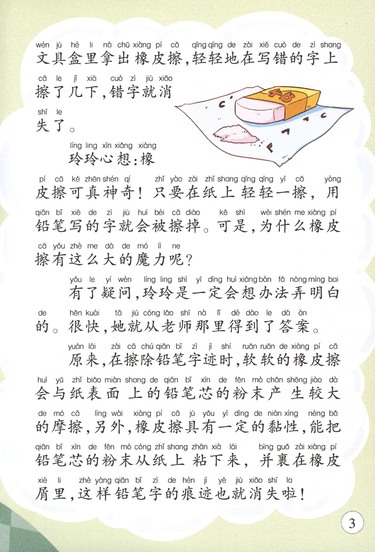 wén jù hé li ná chū xiàng pí cā qīng qīng de zài xiě cuò de zì shang
文具盒里拿出橡皮擦,轻轻地在写错的字上
cā le jǐ xià cuò zì jiù xiāo
擦了几下,错字就消
shī le
失了。
líng ling xīn xiǎng xiàng
玲玲心想:橡
pí cā kě zhēn shén qí zhǐ yào zài zhǐ shang qīng qīng yì cā yòng
皮擦可真神奇!只要在纸上轻轻一擦,用
qiān bǐ xiě de zì jiù huì bèi cā diào kě shì wèi shén me xiàng pí
铅笔写的字就会被擦掉。可是,为什么橡皮
cā yǒu zhè me dà de mó lì ne
擦有这么大的魔力呢?
yǒu le yí wèn líng ling shì yí dìng huì xiǎng bàn fǎ nòng míng bai
有了疑问,玲玲是一定会想办法弄明白
de hěn kuài tā jiù cóng lǎo shī nà lǐ dé dào le dá àn
的。很快,她就从老师那里得到了答案。
yuán lái zài cā chú qiān bǐ zì jì shí ruǎn ruǎn de xiàng pí cā
原来,在擦除铅笔字迹时,软软的橡皮擦
huì yǔ zhǐ biǎo miàn shang de qiān bǐ xīn de fěn mò chǎn shēng jiào dà
会与纸表面上的铅笔芯的粉末产生较大
de mó cā lìng wài xiàng pí cā jù yǒu yí dìng de nián xìng néng bǎ
的摩擦,另外,橡皮擦具有一定的黏性,能把
qiān bǐ xīn de fěn mò cóng zhǐ shang zhān xià lái bìng guǒ zài xiàng pí
铅笔芯的粉末从纸上粘下来,并裹在橡皮
xiè li zhè yàng qiān bǐ zì de hén jì yě jiù xiāo shī la
屑里,这样铅笔字的痕迹也就消失啦!
3